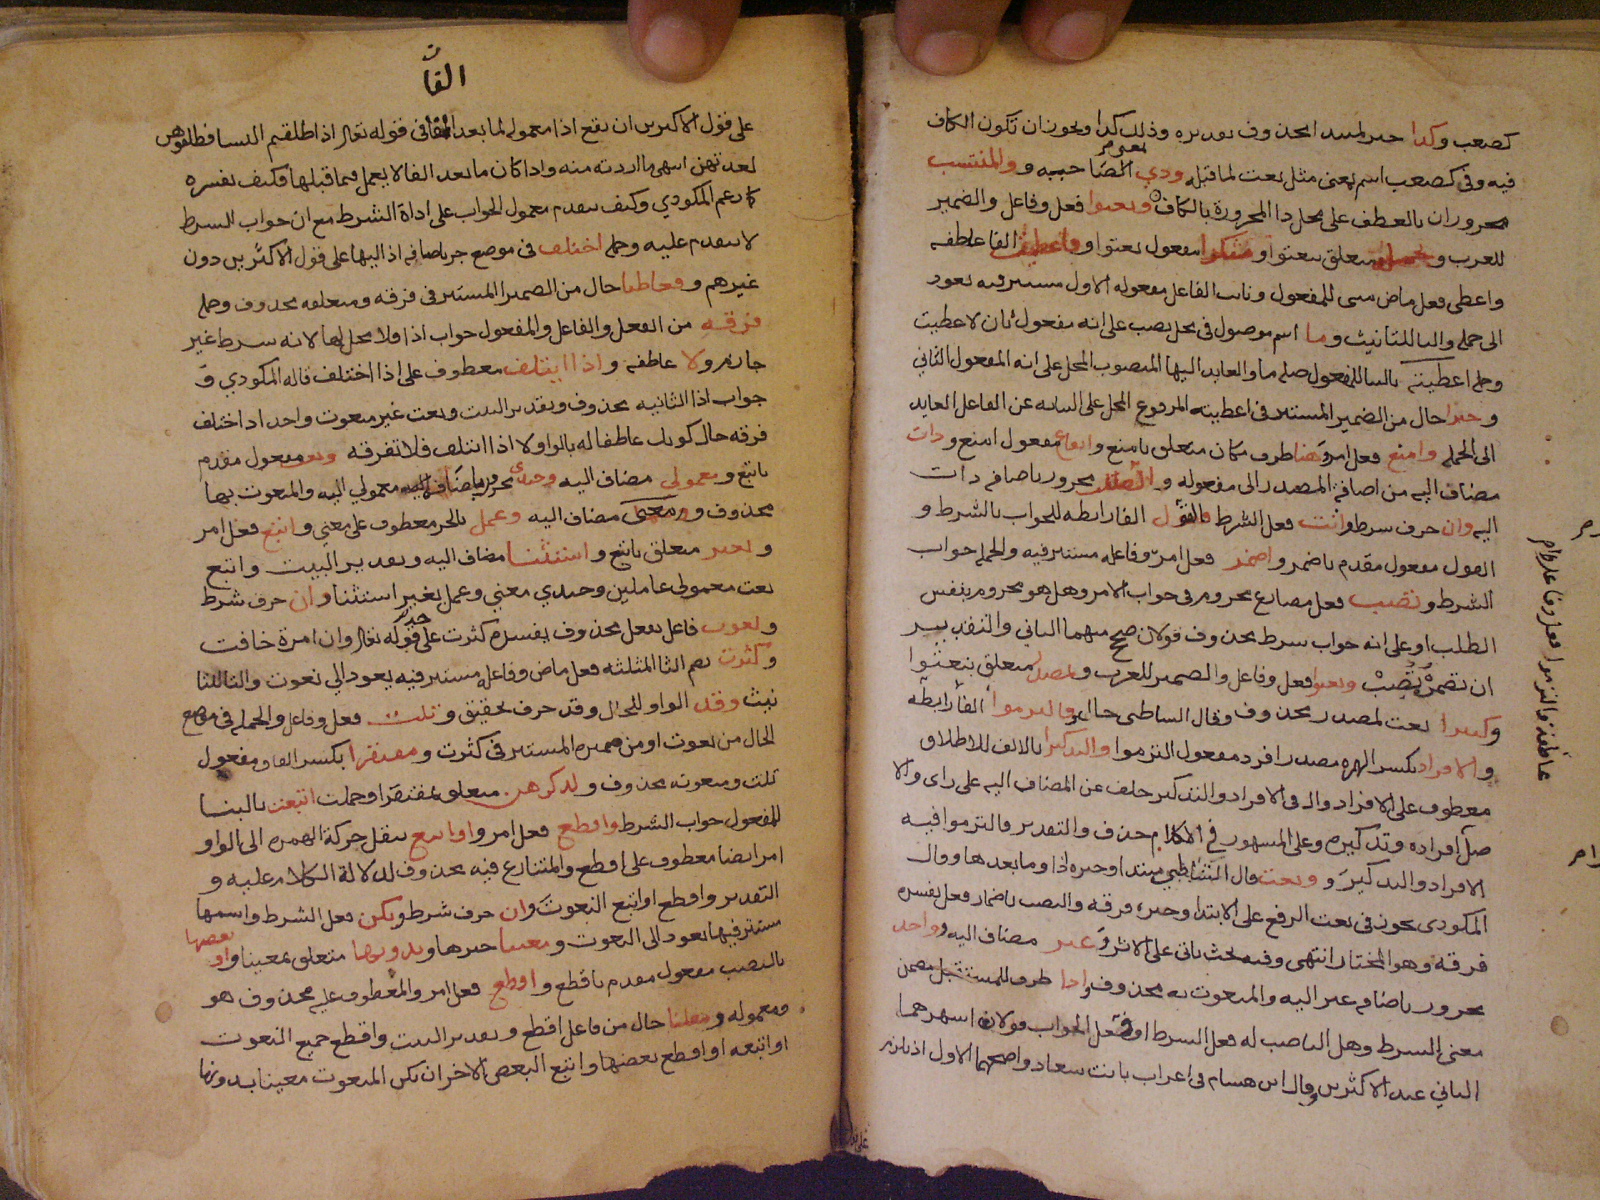 كصعب وكذا خبر لمبتدا محذوف تقديره وذلك كذا ويجوز ان تكون الكاف
فيه وفي كصعب اسم بمعنى مثل نعت لما قبله وذي الصاحبيه والمنتسب
مجروران بالعطف على محل ذا المجرورة بالكاف ونعتوا فعل وفاعل والضمير
للعرب و متعلق بنعتوا و منكرا مفعول نعتوا و فاعطيت الفا عاطفه
واعطي فعل ماض مبني للمفعول ونائب الفاعل مفعوله الاول مستتر فيه يعود
الى جمله والتا للتانيث وما اسم موصول في محل نصب على انه مفعول ثان لاعطيت
وجمله اعطيته بالبنا للمفعول صله ما والعايد اليها الها المنصوب المحل على انه المفعول الثاني
و خبرا حال من الضمير المستتر في اعطيته المرفوع المحل على النيابه عن الفاعل العايد
الى الجمله وامنع فعل امر وهنا ظرف مكان متعلق بامنع وايقاع مفعول امنع وذات
مضاف اليه من اضافة المصدر الى مفعوله و الطلب مجرور باضافه ذات
اليه وان حرف شرط واتت فعل الشرط فالقول الفا رابطه للجواب بالشرط و
القول مفعول مقدم باضمر و اضمر فعل امر وفاعله مستتر فيه والجمله جواب
الشرط و تصب فعل مضارع مجزوم في جواب الامر وهل هو مجزوم بنفس
الطلب او على انه جواب شرط محذوف قولان صحح منهما الثاني والتقدير
ان تضمره تصب ونعتوا فعل وفاعل والضمير للعرب و بمصدر متعلق بنعتوا
و كثيرا نعت لمصدر محذوف وقال الشاطبي حال و فالتزموا الفا رابطه
و الافراد بكسر الهمزه مصدر افرد مفعول التزموا والتذكيرا بالالف للاطلاق
معطوف على الافراد وال في الافراد والتذكير خلف عن المضاف اليه على راى والا
صل افراده وتذكيره وعلى المشهور في الكلام حذف والتقدير فالتزموا فيه
الافراد والتذكير و ونعت قال الشاطبي مبتدا وخبره اذا وما بعدها وقال
المكودي يجوز في نعت الرفع على الابتدا وخبره فرقه والنصب باضمار فعل يفسره
فرقه وهو المختار انتهى وفيه بحث ياتي على الاثر و غير مضاف اليه و واحد
مجرور باضافه غير اليه والمنعوت به محذوف و اذا ظرف للمستقبل مضمن
معنى الشرط وهل الناصب له فعل الشرط او فعل الجواب قولان اشهرهما
الثاني عند الاكثرين وقال ابن هشام في اعراب بانت سعاد واصحهما الاول اذ يلزم
عاطفة والتزموا فعل وفاعل
القا
على قول الاكثرين ان يقع اذا معموله لما بعد الفا في قوله تعالى اذا طلقتم النسا فطلقوهن
لعدتهن اسهي ما اردته منه واذا كان ما بعد الفا لا يعمل فيما قبلها فكيف يفسره
كما زعم المكودي وكيف يتقدم معمول الجواب على اداة الشرط مع ان جواب الشرط
لا يتقدم عليه وجمله اختلف في موضع جر باضافه اذا اليها على قول الاكثرين دون
غيرهم و فعاطفا حال من الضمير المستتر في فرقه ومتعلقه محذوف وجمله
فرقه من الفعل والفاعل والمفعول جواب اذا فلا محل لها لانه شرط غير
جازم و لا عاطفه و اذا ائتلف معطوف على اذا اختلف قاله المكودي و
جواب اذا الثانيه محذوف وتقدير البيت ونعت غير منعوت واحد اذا اختلف
فرقه حال كونك عاطفا له بالواو لا اذا ائتلف فلا تفرقه ونعت مفعول مقدم
باتبع و معمولي مضاف اليه وحيدي مجرور باضافه معمولي اليه والمنعوت بها
محذوف و معنى مضاف اليه وعمل بالجر معطوف على معنى و اتبع فعل امر
و بغير متعلق باتبع و استثنا مضاف اليه وتقدير البيت واتبع
نعت معمولي عاملين وحيدي معنى وعمل بغير استثنا وان حرف شرط
و نعوت فاعل بفعل محذوف يفسره كثرت على حد قوله تعالى وان امرة خافت
و كثرت بضم الثا المثلثه فعل ماض وفاعله مستتر فيه يعود الى نعوت والتا للتا
نيث وقد الواو للحال وقد حرف تحقيق و تلت فعل وفاعل والجمله في موضع
الحال من نعوت او من ضميره المستتر في كثرت و مفتقرا بكسر القاف مفعول
تلت ومنعوته محذوف و لذكرهن متعلق بمفتقرا وجملة اتبعت بالبنا
للمفعول جواب الشرط و اقطع فعل امر و او اتبع بنقل حركة الهمزه الى الواو
امر ايضا معطوف على اقطع والمتنازع فيه محذوف لدلالة الكلام عليه و
التقدير واقطع او اتبع النعوت وان حرف شرط و يكن فعل الشرط واسمها
مستتر فيها يعود الى النعوت و معينا خبرها و بدونها متعلق بمعينا و او بعضها
بالنصب مفعول مقدم باقطع و اقطع فعل امر والمعطوف عليه محذوف هو
ومعموله و معلنا حال من فاعل اقطع وتقدير البيت واقطع جميع النعوت
او اتبعه او اقطع بعضها واتبع البعض الاخر ان يكن المنعوت معينا بدونها